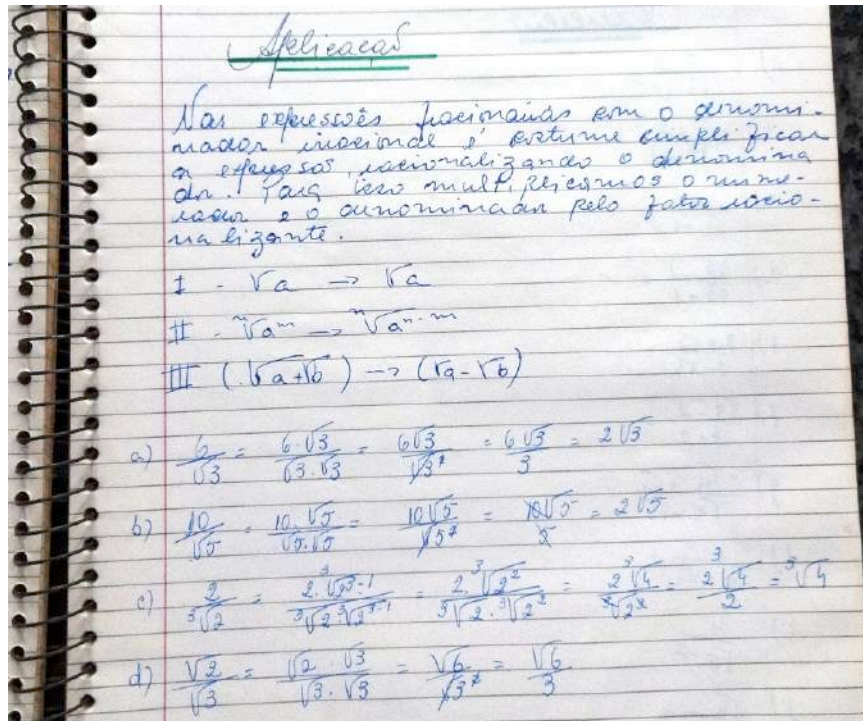 Aplicação
Nas expressões fracionárias com o denomi-
nador irracional é costume simplificar
a expressão, racionalizando o denomina
dor. Para isso multiplicamos o nume-
rador e o denominador pelo fator racio-
nalizante.
I - √a → √a
II - ⁿ√aᵐ → ⁿ√aⁿ⁻ᵐ
III (√a+√b) → (√a-√b)
a) 6/√3 = 6·√3/√3·√3 = 6√3/√3² = 6√3/3 = 2√3
b) 10/√5 = 10·√5/√5·√5 = 10√5/√5² = 10√5/5 = 2√5
c) 2/³√2 = 2·³√2³⁻¹/³√2·³√2³⁻¹ = 2·³√2²/³√2·³√2² = 2³√4/³√2³ = 2³√4/2 = ³√4
d) √2/√3 = √2·√3/√3·√3 = √6/√3² = √6/3